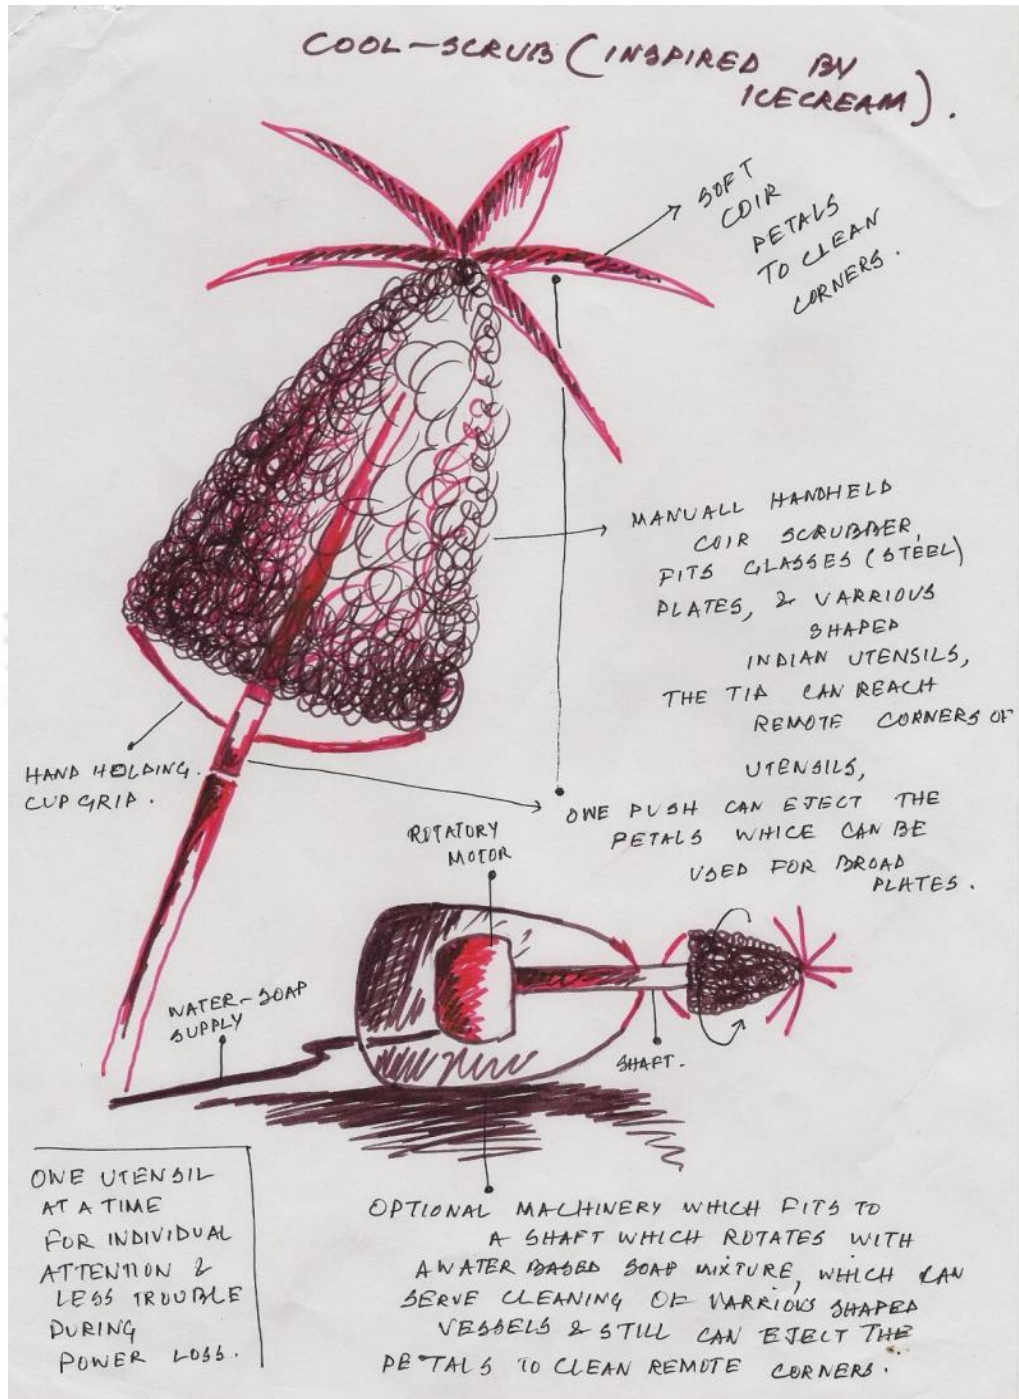 COOL-SCRUB (INSPIRED BY
ICECREAM).
SOFT
COIR
PETALS
TO CLEAN
CORNERS.
MANUALL HANDHELD
COIR SCRUBBER,
FITS GLASSES (STEEL)
PLATES, & VARRIOUS
SHAPED
INDIAN UTENSILS,
THE TIP CAN REACH
REMOTE CORNERS OF
UTENSILS,
HAND HOLDING.
CUP GRIP.
OWE PUSH CAN EJECT THE
PETALS WHICE CAN BE
USED FOR BROAD
PLATES.
ROTATORY
MOTOR
WATER-SOAP
SUPPLY
SHAFT.
ONE UTENSIL
AT A TIME
FOR INDIVIDUAL
ATTENTION &
LESS TROUBLE
DURING
POWER LOSS.
OPTIONAL MACHINERY WHICH FITS TO
A SHAFT WHICH ROTATES WITH
A WATER BASED SOAP MIXTURE, WHICH CAN
SERVE CLEANING OF VARRIOUS SHAPED
VESSELS & STILL CAN EJECT THE
PETALS TO CLEAN REMOTE CORNERS.